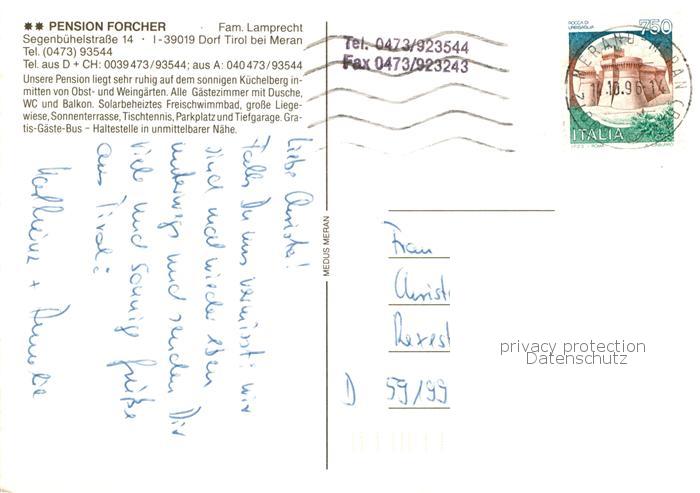 ** PENSION FORCHER · Fam. Lamprecht
Segenbühelstraße 14 · I-39019 Dorf Tirol bei Meran
Tel. (0473) 93544
Tel. aus D + CH: 0039 473/93544; aus A: 040 473/93544
Unsere Pension liegt sehr ruhig auf dem sonnigen Küchelberg in-
mitten von Obst- und Weingärten. Alle Gästezimmer mit Dusche,
WC und Balkon. Solarbeheiztes Freischwimmbad, große Liege-
wiese, Sonnenterrasse, Tischtennis, Parkplatz und Tiefgarage. Gra-
tis-Gäste-Bus – Haltestelle in unmittelbarer Nähe.
Tel. 0473/923544
Fax 0473/923243
ROCCA DI
URBISAGLIA
750
ITALIA
MERANO MERAN
14.10.96-14
Liebe Christa!
Falls Du uns vermißt: wir
sind mal wieder eben
unterwegs und senden Dir
viele und sonnige Grüße
aus Tirol:
+
MEDUS MERAN
Frau
Christ
D 59199
privacy protection
Datenschutz